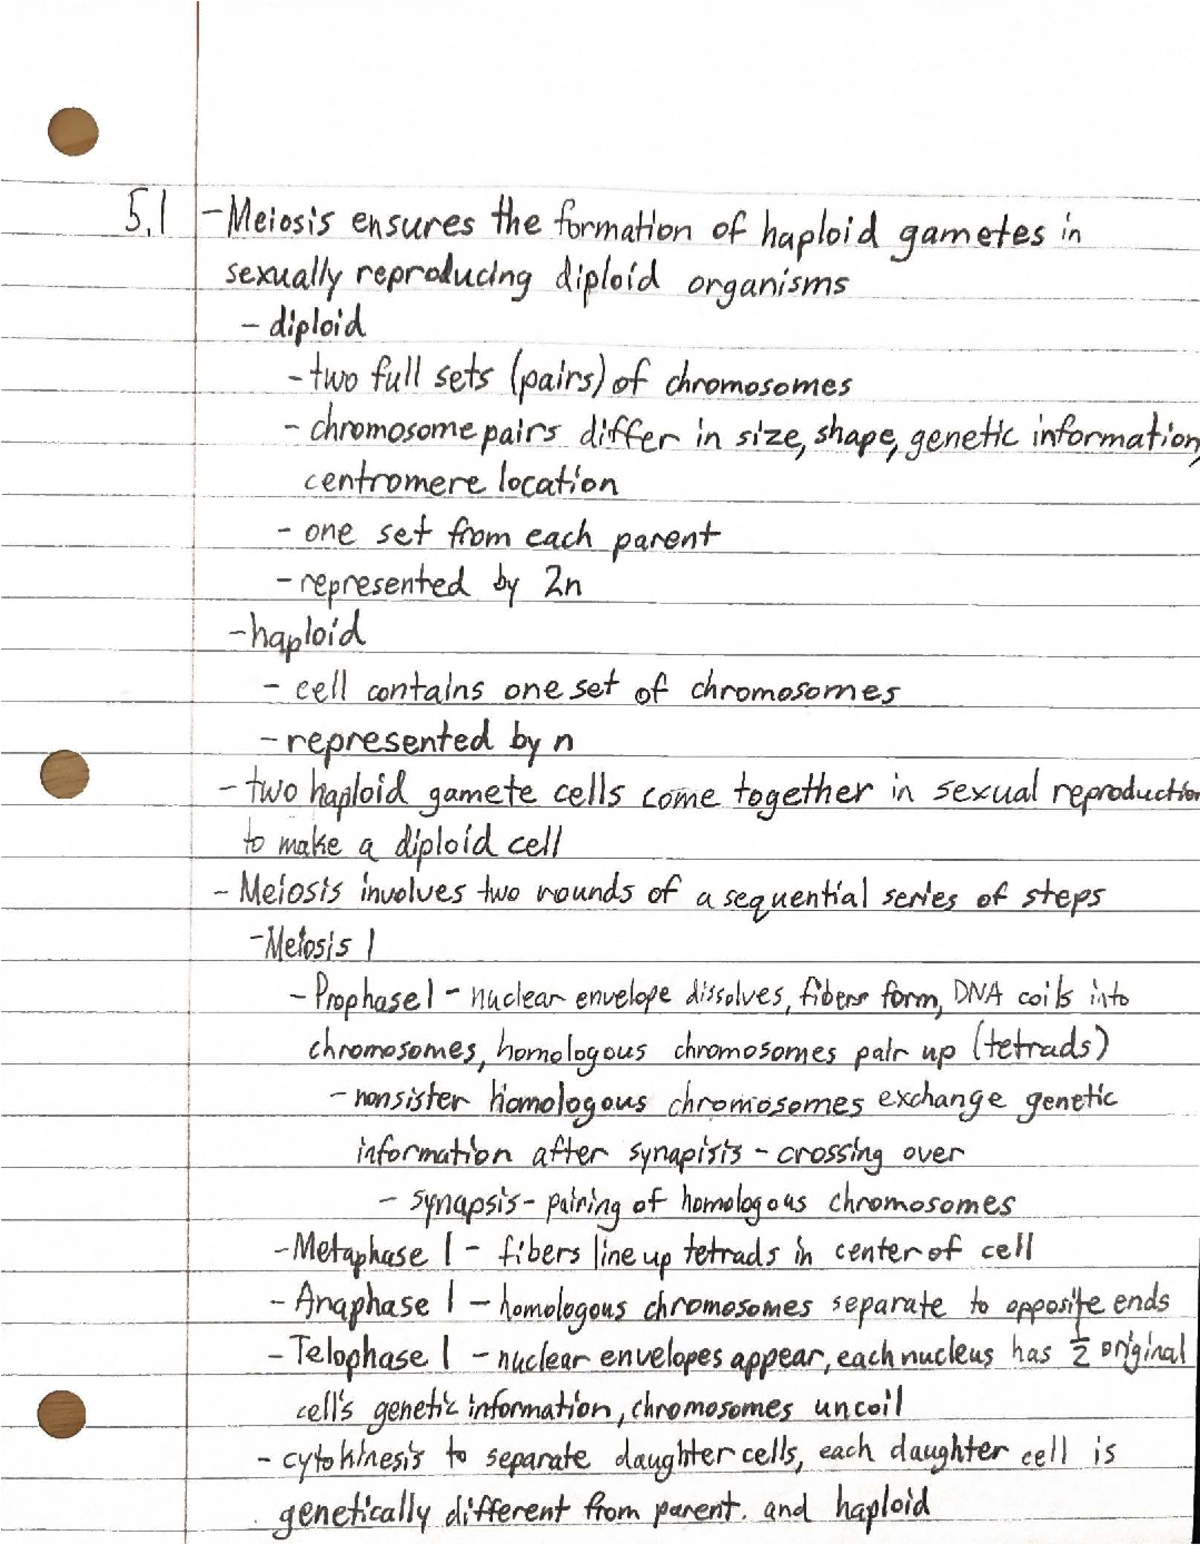 5.1 - Meiosis ensures the formation of haploid gametes in
sexually reproducing diploid organisms
- diploid
- two full sets (pairs) of chromosomes
- chromosome pairs differ in size, shape, genetic information,
centromere location
- one set from each parent
- represented by 2n
- haploid
- cell contains one set of chromosomes
- represented by n
- two haploid gamete cells come together in sexual reproduction
to make a diploid cell
- Meiosis involves two rounds of a sequential series of steps
- Meiosis 1
- Prophase 1 - nuclear envelope dissolves, fibers form, DNA coils into
chromosomes, homologous chromosomes pair up (tetrads)
- nonsister homologous chromosomes exchange genetic
information after synapisis - crossing over
- synapsis - pairing of homologous chromosomes
- Metaphase 1 - fibers line up tetrads in center of cell
- Anaphase 1 - homologous chromosomes separate to opposite ends
- Telophase 1 - nuclear envelopes appear, each nucleus has 1/2 original
cell's genetic information, chromosomes uncoil
- cytokinesis to separate daughter cells, each daughter cell is
genetically different from parent. and haploid